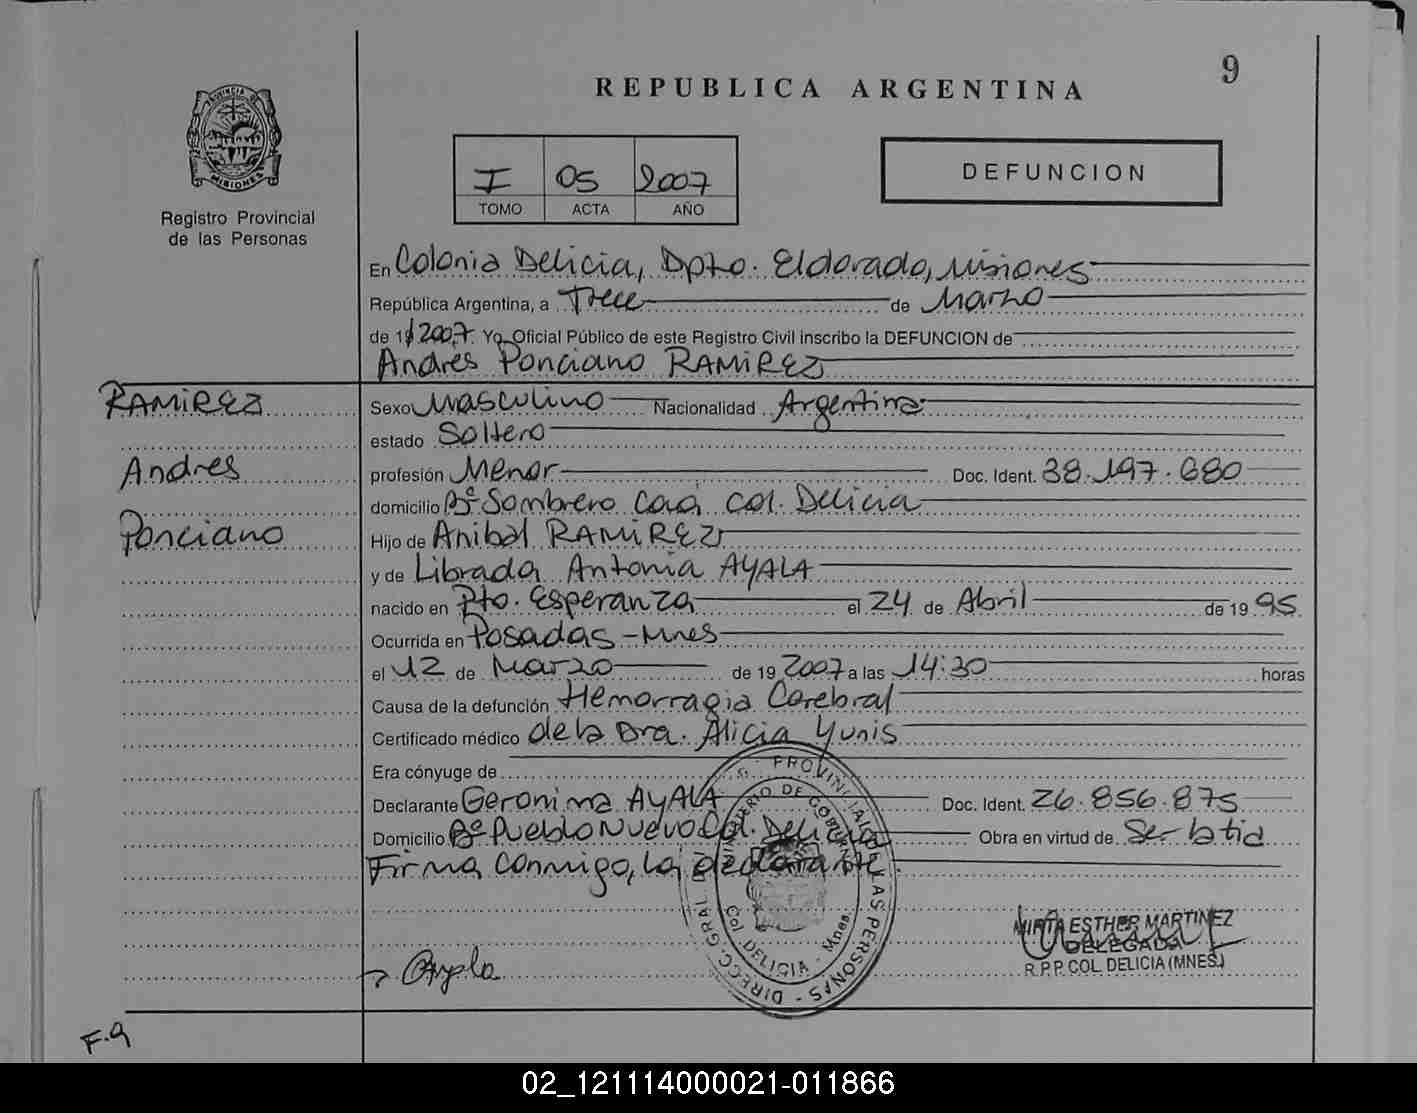 9
REPUBLICA ARGENTINA
PROVINCIA DE
MISIONES
Registro Provincial
de las Personas
I 05 2007
TOMO ACTA AÑO
DEFUNCION
En Colonia Delicia, Dpto. Eldorado, Misiones
República Argentina, a Trece de Marzo
de 19 2007. Yo, Oficial Público de este Registro Civil inscribo la DEFUNCION de
Andres Ponciano RAMIREZ
RAMIREZ
Andres
Ponciano
Sexo Masculino Nacionalidad Argentina
estado Soltero
profesión Menor Doc. Ident. 38.197.680
domicilio Bº Sombrero Caá Col. Delicia
Hijo de Anibal RAMIREZ
y de Librada Antonia AYALA
nacido en Pto. Esperanza el 24 de Abril de 19 95
Ocurrida en Posadas - Mnes
el 12 de Marzo de 19 2007 a las 14:30 horas
Causa de la defunción Hemorragia Cerebral
Certificado médico de la Dra. Alicia Yunis
Era cónyuge de
Declarante Geronima AYALA Doc. Ident. 26.856.875
Domicilio Bº Pueblo Nuevo Col. Delicia Obra en virtud de Ser la tia
Firma conmigo, la declarante.
DIREC. GRAL. DEL REG. PROVINCIAL DE LAS PERSONAS
MINISTERIO DE GOBIERNO
Col. DELICIA - Mnes.
Ayala
MIRTA ESTHER MARTINEZ
DELEGADA
R.P.P. COL. DELICIA (MNES.)
F.9
02_121114000021-011866